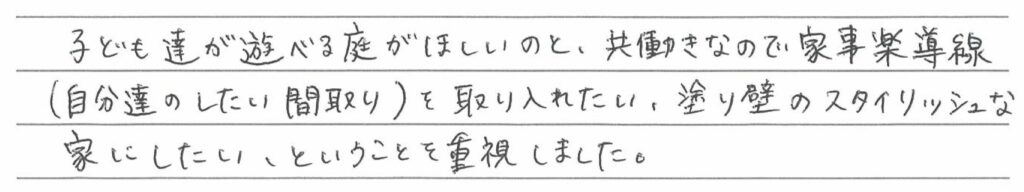 子ども達が遊べる庭がほしいのと、共働きなので家事楽導線
(自分達のしたい間取り)を取り入れたい、塗り壁のスタイリッシュな
家にしたい、ということを重視しました。